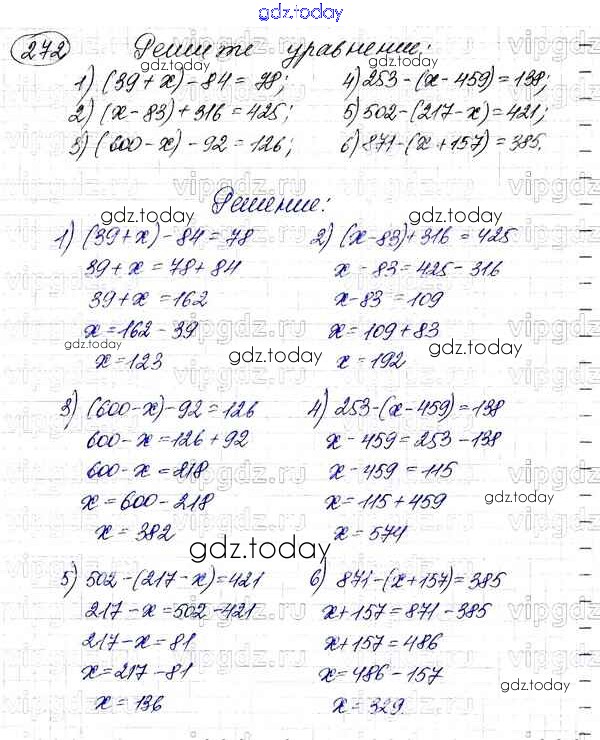 gdz.today
272 Решите уравнение:
1) (39+x)-84=78; 4) 253-(x-459)=138;
2) (x-83)+316=425; 5) 502-(217-x)=421;
3) (600-x)-92=126; 6) 871-(x+157)=385.
Решение:
gdz.today
gdz.today
1) (39+x)-84=78
39+x=78+84
39+x=162
x=162-39
gdz.today
x=123
2) (x-83)+316=425
x-83=425-316
x-83=109
x=109+83
x=192
gdz.today
gdz.today
3) (600-x)-92=126
600-x=126+92
600-x=218
x=600-218
x=382
4) 253-(x-459)=138
x-459=253-138
x-459=115
x=115+459
x=574
gdz.today
gdz.today
5) 502-(217-x)=421
217-x=502-421
217-x=81
x=217-81
x=136
6) 871-(x+157)=385
x+157=871-385
x+157=486
x=486-157
x=329.
gdz.today
vipgdz.ru